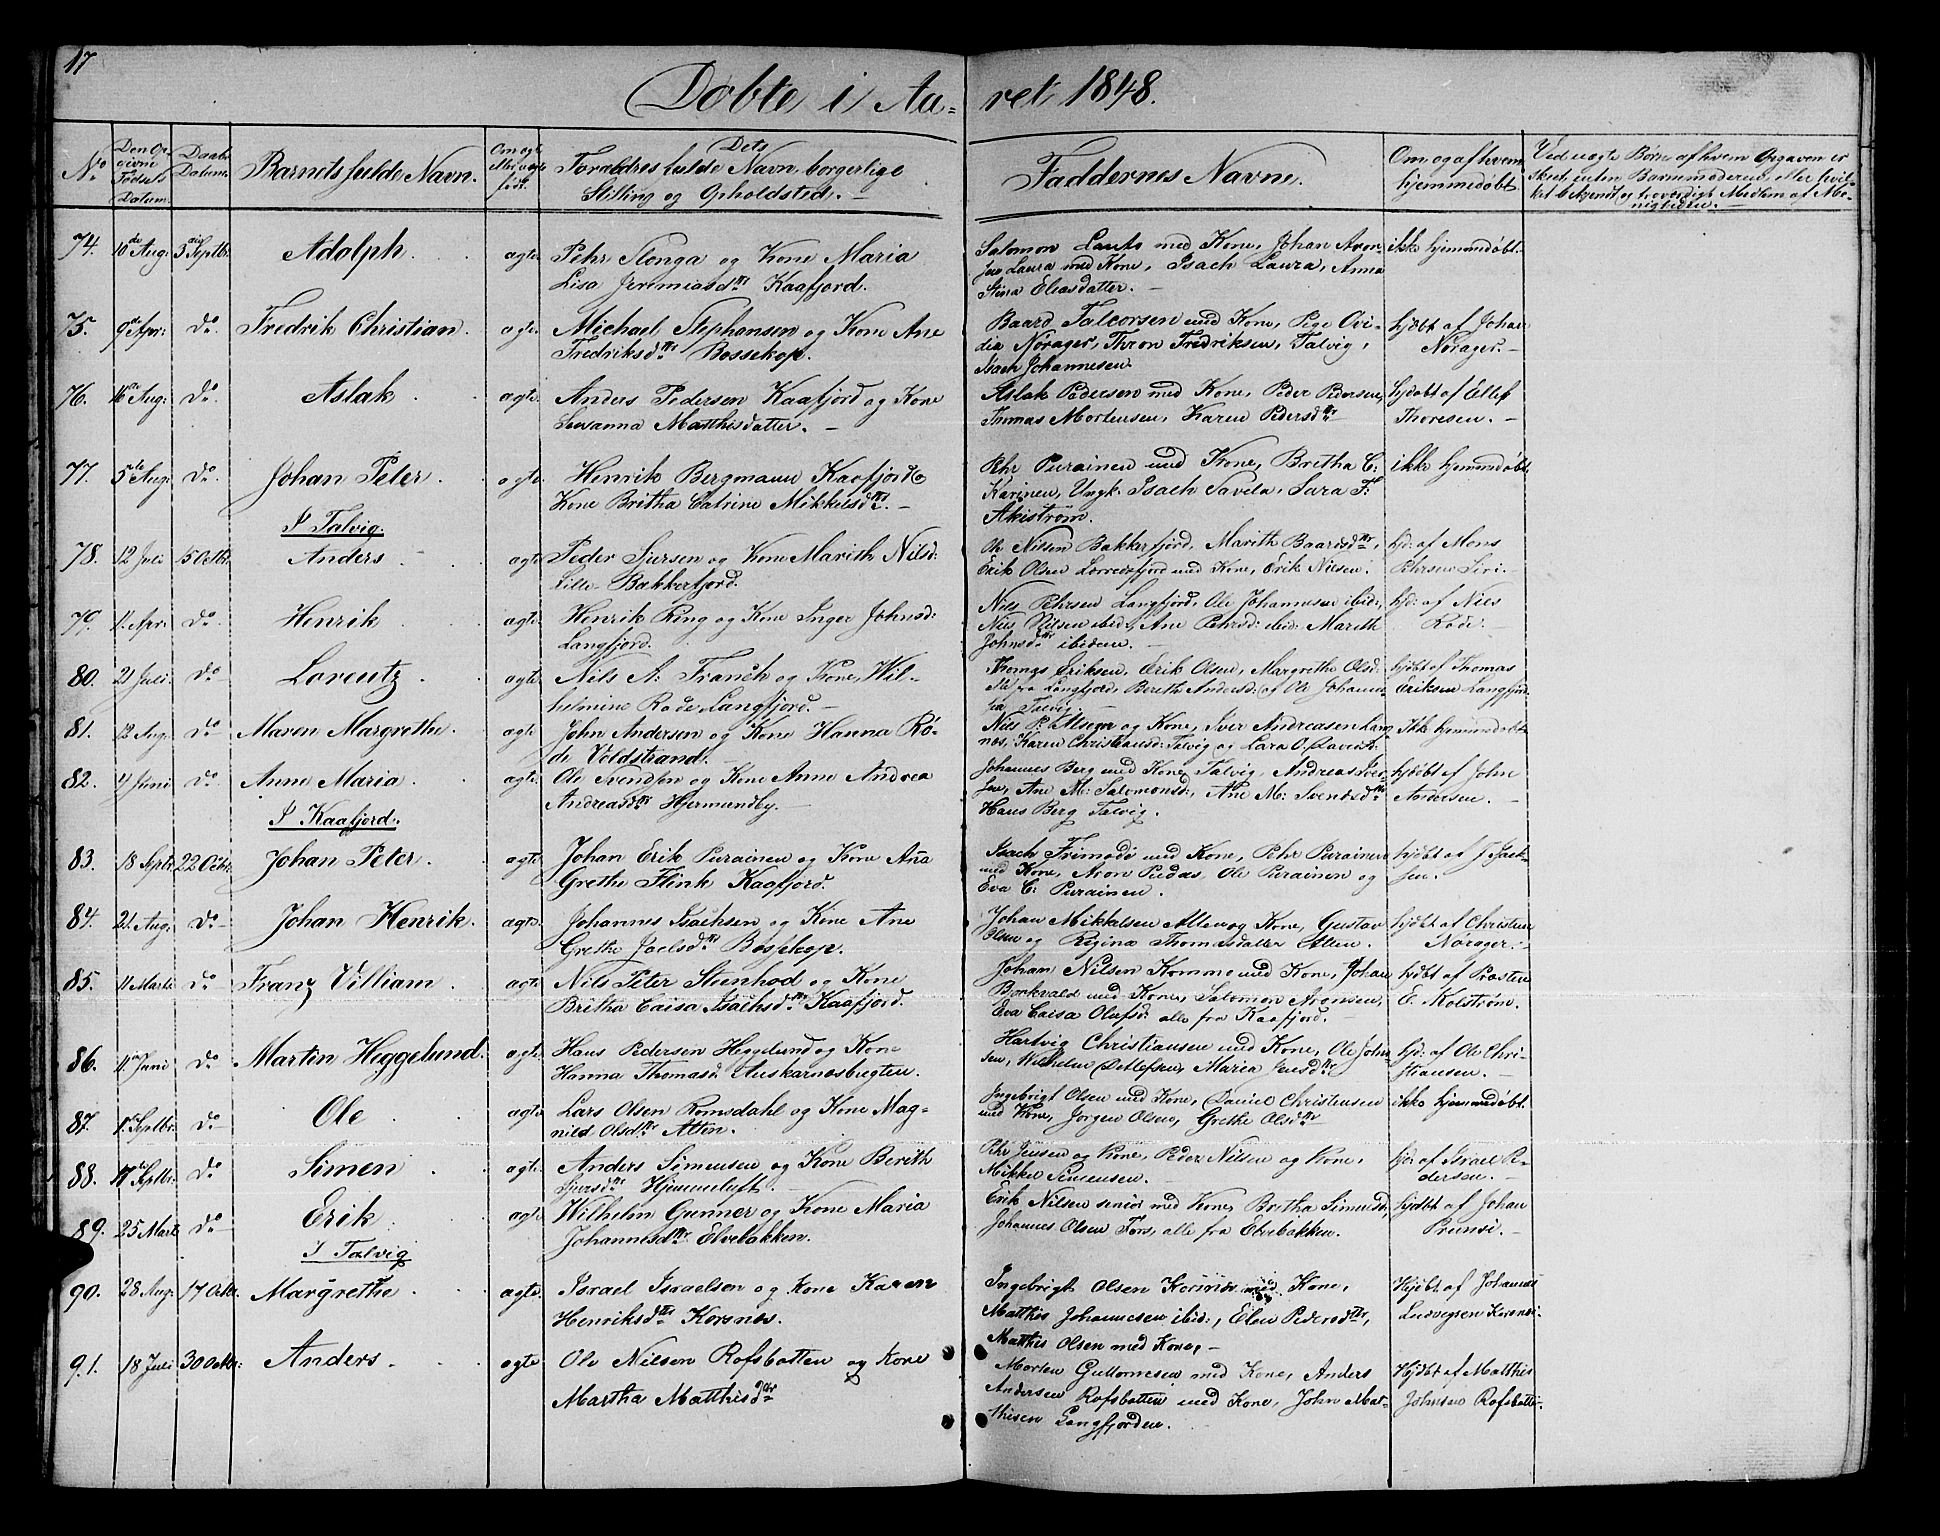 17
Døbte i Aa-
ret 1848.
No
Den Op-
givne
Fødsels
Datum.
Daabs
Datum.
Barnets fulde Navn.
Om ægte
eller uægte
født.
Dets
Forældres fulde Navn borgerlige
Stilling og Opholdsted.
Faddernes Navne.
Om og af hvem
hjemmedøbt
Ved uægte Børn af hvem Opgaven er
skeet, enten Barnemoderen, eller hvil-
ket bekjendt og troværdigt Medlem af Me-
nigheden.
74. 10de Aug: 3die Septbr. Adolph. ægte. Pehr Stonga og Kone Maria
Lisa Jeremiasdtr Kaafjord.
Salomon med Kone, Johan Aron-
sen Laura med Kone, Isach Laura, Anna
Stina Eliasdatter.
ikke hjemmedøbt.
75. 9de Apr: Do Fredrik Christian. ægte. Michael Stephansen og Kone Ane
Fredriksdtr Bossekop.
Baard Talcorsen med Kone, Pige Ovi-
dia Norager, Thron Fredriksen, Talvig,
Isach Johannesen
hjdøbt af Johan
Norager.
76. 16de Aug: Do Aslak ægte. Anders Pedersen Kaafjord og Kone
Susanna Matthisdatter.
Aslak Pedersen med Kone, Peder Pedersen,
Thomas Mortensen, Karen Pedersdtr
hjdøbt af Ellef
Thoresen.
77. 5te Aug: Do Johan Peter. ægte. Henrik Bergmann Kaafjord &
Kone Britha Catrine Mikkelsdtr.
Pehr Purainen med Kone, Bretha C:
Karinen, Ungk: Isach Savela, Sara F:
Akiström.
ikke hjemmedøbt.
I Talvig.
78. 12 Juli 15 Octbr. Anders ægte Peder Sjursen og Kone Marith Nilsd:
Lille Bakkerfjord.
Nilsen Bakkerfjord, Marith Baardsdtr,
Erik Olsen Lerredsfjord med Kone, Erik Nilsen.
hjd: af Mons
Pehrsen Siri-
79. 11 Apr: Do Henrik ægte. Henrik Ring og Kone Inger Johnsd:
Langfjord.
Nils Pehrsen Langfjord, Ole Johannesen ibid:,
Nils Nilsen ibid:, Ane Pehrsd: ibid: Marith
Johnsdtr ibidem.
hjd: af Nils
Røde.
80. 21 Juli. Do Lorentz. ægte. Nils A: Franch og Kone, Wil-
helmine Røde Langfjord.
Thomas Eriksen, Erik Olsen, Margrethe Olsd:
alle fra Langfjord, Bereth Andersd: af Ole Johann
fra Talvig.
hjdøbt af Thomas
Eriksen Langfjord.
81. 12 Aug: Do Maren Margrethe. ægte John Andersen og Kone Hanna Rø-
de Voldstrand.
Nils P. Alseger og Kone, Iver Andreasen
nes, Karen Christiansd: Talvig og Lara O.
Ikke hjemmedøbt.
82. 4 Juni Do Anne Maria. ægte. Ole Svendsen og Kone Anne Andrea
Andreasdtr Hjermundby.
Johannes Berg med Kone, Talvig, Andreas Iver-
sen, Ane M: Salomonsd:, Ane M: Svendsdtr
Hans Berg Talvig.
hjdøbt af John
Andersen.
I Kaafjord.
83. 18 Septbr. 22 Octbr: Johan Peter. ægte. Johan Erik Purainen og Kone Aña
Grethe Flink Kaafjord.
Isach Frimodi med Kone, Pehr Purainen
med Kone, Aron Puldas, Ole Purainen og
Eva C: Purainen.
hjdøbt af J Isack-
sen.
84. 21. Aug: Do Johan Henrik. ægte. Johannes Isachsen og Kone Ane
Grethe Joelsdtr Bosekop.
Johan Mikkelsen Alten og Kone, Gustav
Olsen og Regina Thomasdatter Alten.
hjdøbt af Christian
Norager.
85. 11 Marts Do Franz Villiam. ægte. Nils Peter Steenhod og Kone
Britha Caisa Isachsdtr Kaafjord.
Johan Nilsen Komme med Kone, Johan
Bonkvald med Kone, Salomon Aronsen,
Eva Caisa Olafsd: alle fra Kaafjord.
hjdøbt af Præsten
E. Kolstrøm.
86. 11 Juni Do Martin Heggelund. ægte. Hans Pedersen Heggelund og Kone
Hanna Thomasd: Auskarnesbugten.
Hartvig Christiansen med Kone, Ole John-
sen, Wilhelm Detlefsen, Maria Jensdtr
hjd: af Ole Chri-
stiansen.
87. 1 Septbr. Do Ole ægte. Lars Olsen Romsdahl og Kone Mag-
nild Olsdtr Alten.
Ingebrigt Olsen med Kone, Daniel Christensen
med Kone, Jørgen Olsen, Grethe Olsdtr
ikke hjemmedøbt.
88. 17 Septbr. Do Simen ægte. Anders Simensen og Kone Berith
Sjursdtr Hjemmeluft.
Pehr Jensen og Kone, Peder Nilsen og Kone,
Mikkel Simensen.
hjd: af Israel Pe-
dersen.
89. 25 Mart: Do Erik ægte. Wilhelm Gunner og Kone Maria
Johannesdtr Elvebakken.
Erik Nilsen senior med Kone, Bretha Simensd:,
Johannes Olsen Fors, alle fra Elvebakken.
hjdøbt af Johan
Brensi.
I Talvig
90. 28 Aug: 17 Octbr. Margrethe. ægte. Israel Israelsen og Kone Karen
Henriksdtr Korsnes.
Ingebrigt Olsen Korsnes, med Kone,
Matthis Johannesen ibid:, Elen Pedersdtr,
Matthis Olsen med Kone,
Hjdøbt af Johannes
Ludvigsen Korsnes.
91. 18 Juli 30 Octbr: Anders. ægte Ole Nilsen Rafsbotten og Kone
Martha Matthisdtr
Morten Guttormsen med Kone, Anders
Andersen Rafsbotten med Kone, John Mat-
thisen Langfjorden.
Hjdøbt af Matthis
Johnsen Rafsbotten.